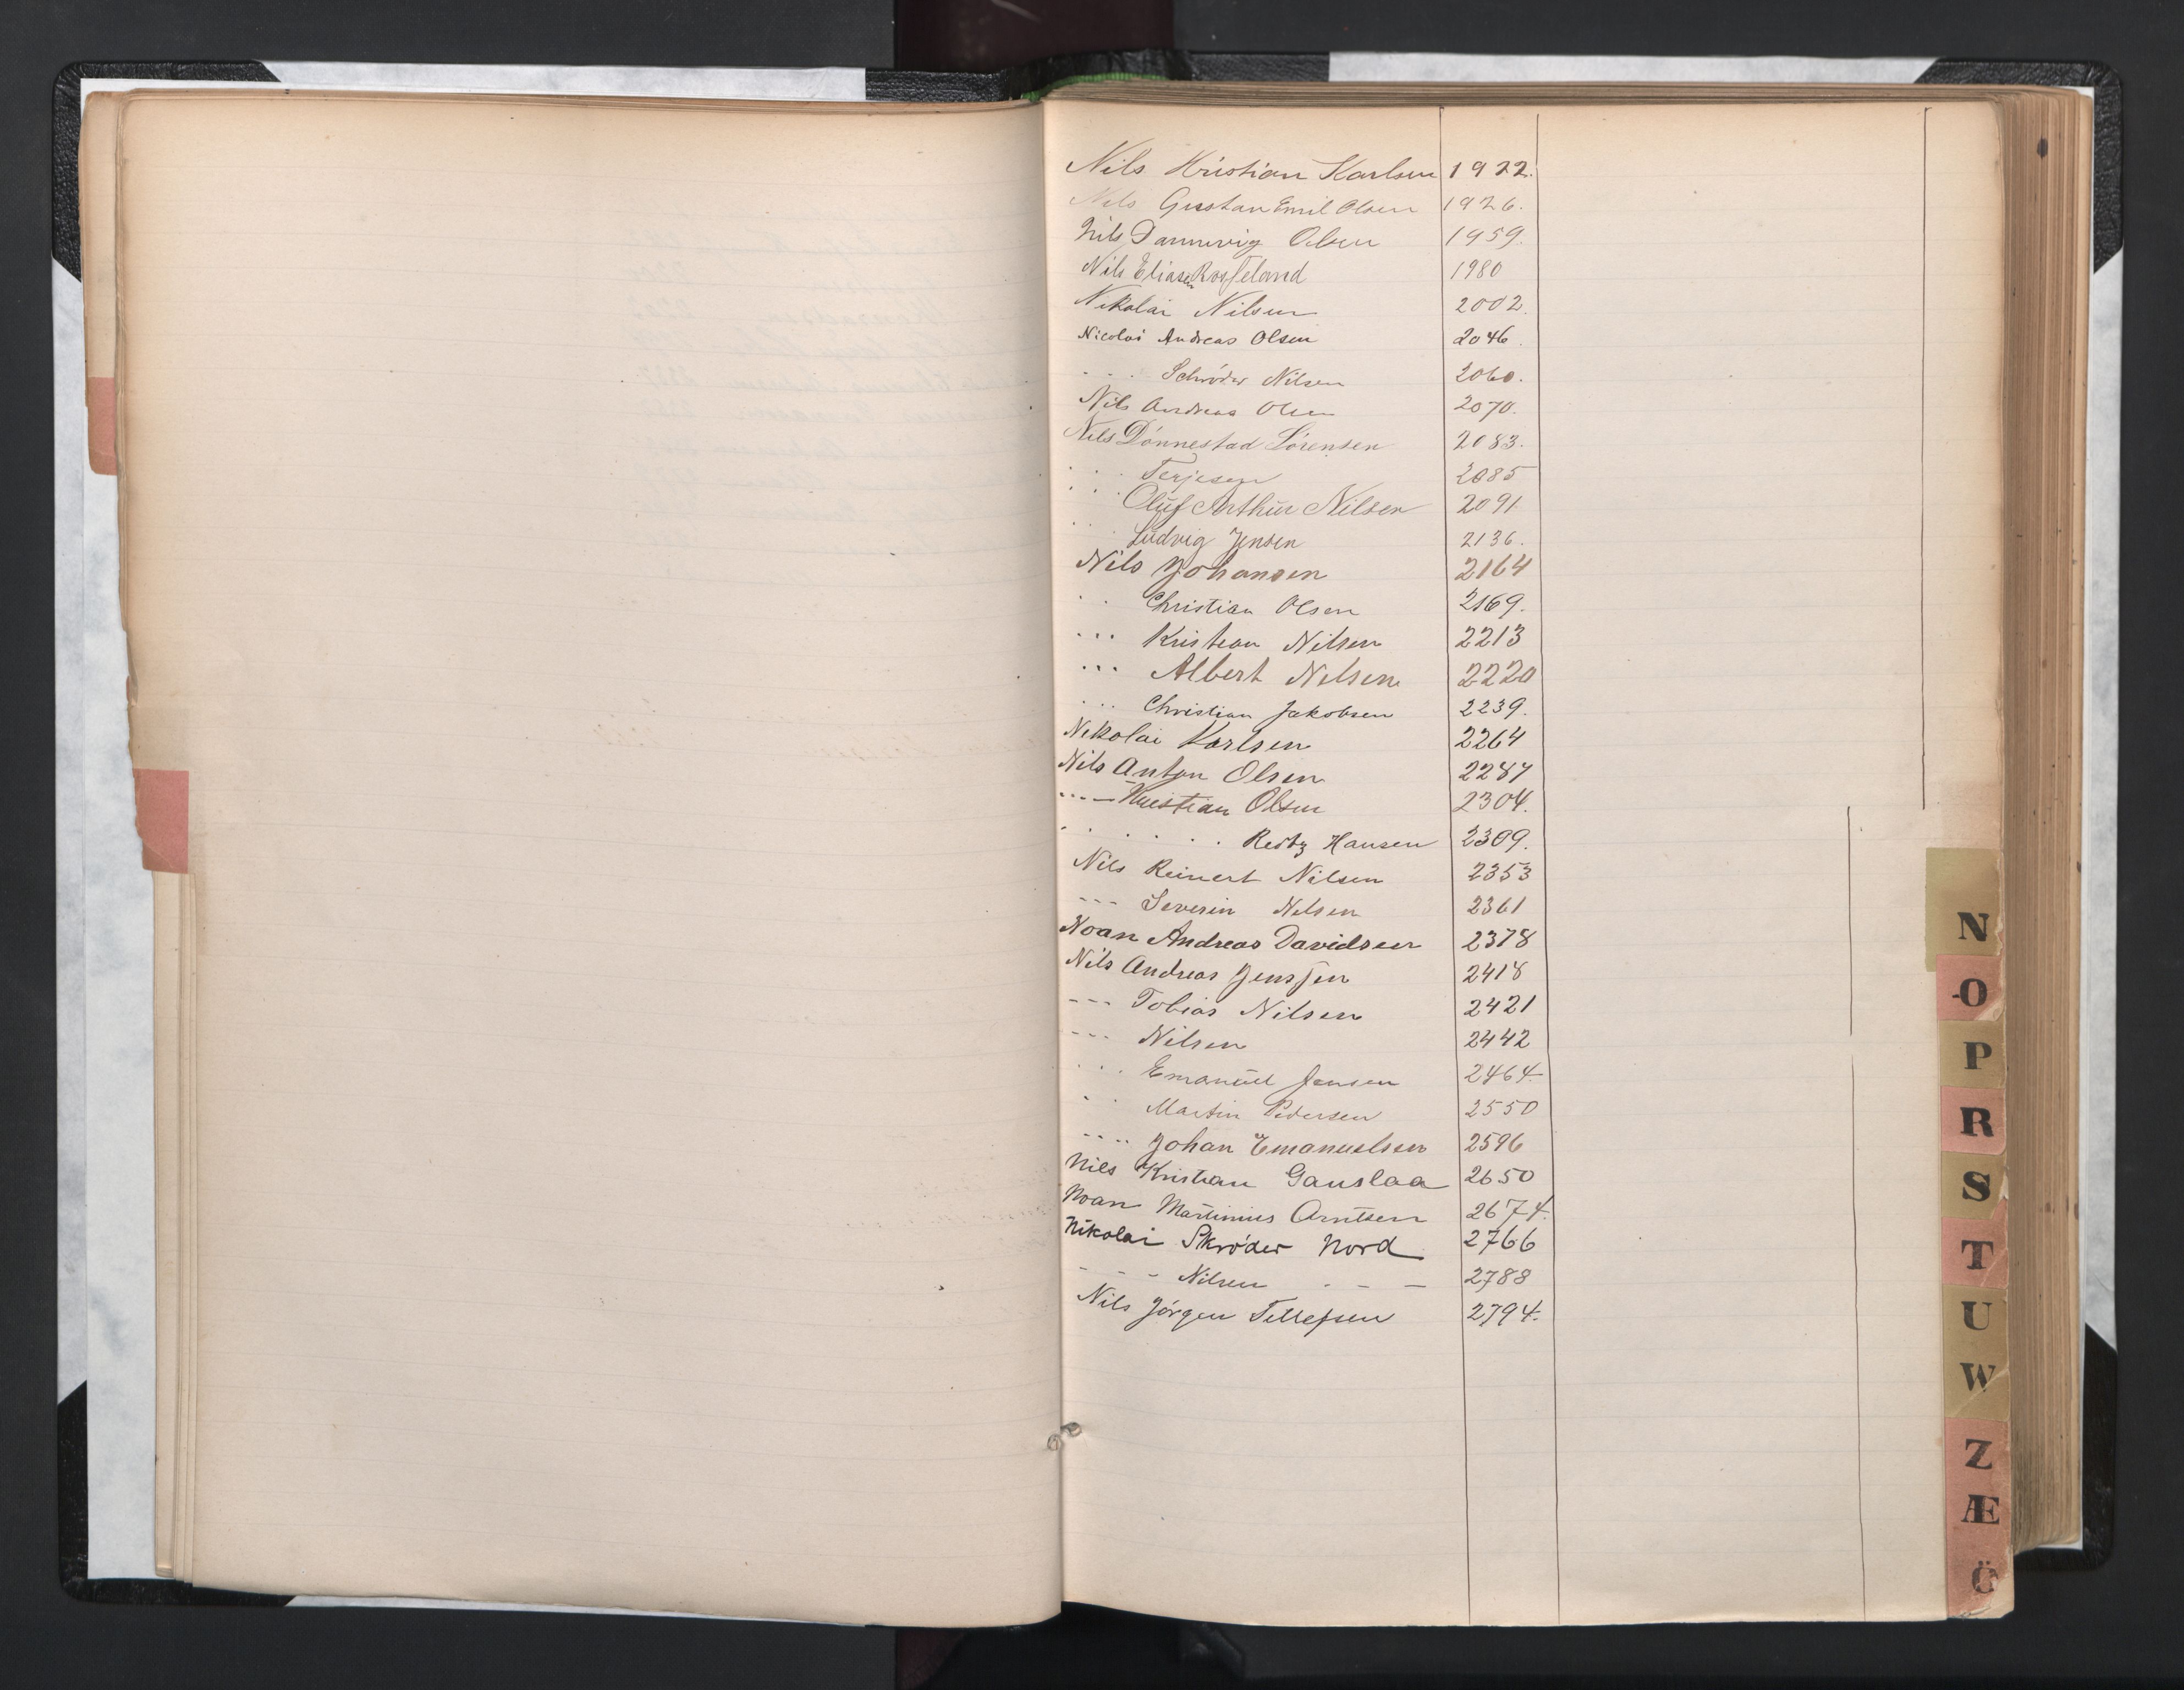 Nils Kristian Karlsen 1922.
Nils Gustav Emil Olsen 1926.
Nils Dannevig Olsen 1959.
Nils Eliasen Rosseland 1980
Nikolai Nilsen 2002.
Nicolai Andreas Olsen 2046.
. . . Schröder Nilsen 2060.
Nils Andreas Olsen 2070.
Nils Dönnestad Sörensen 2083.
. . . Terjesen 2085
. . . Oluf Arthur Nilsen 2091
. . . Ludvig Jensen 2136.
Nils Johansen 2164
. . Christian Olsen 2169.
. . . Kristian Nilsen 2213
. . . Albert Nilsen 2220
. . . Christian Jakobsen 2239.
Nikolai Karlsen 2264
Nils Anton Olsen 2287
. . . — Kristian Olsen 2304.
. . . . . . Hansen 2309.
Nils Reinert Nilsen 2353
- - - Severin Nilsen 2361
Noan Andreas Davidsen 2378
Nils Andreas Jenssen 2418
- - - Tobias Nilsen 2421
- - - Nilsen 2442
. . . Emanuel Jensen 2464
. . Martin Pedersen 2550
. . . . Johan Emanuelsen 2596
Nils Kristian Gauslaa 2650
Noan Martinius Arntsen 2674.
Nikolai Skröder Nord 2766
- - - Nilsen . - - 2788
Nils Jörgen Tellefsen 2794.
N
O
P
R
S
T
U
W
Z
Æ
Ö